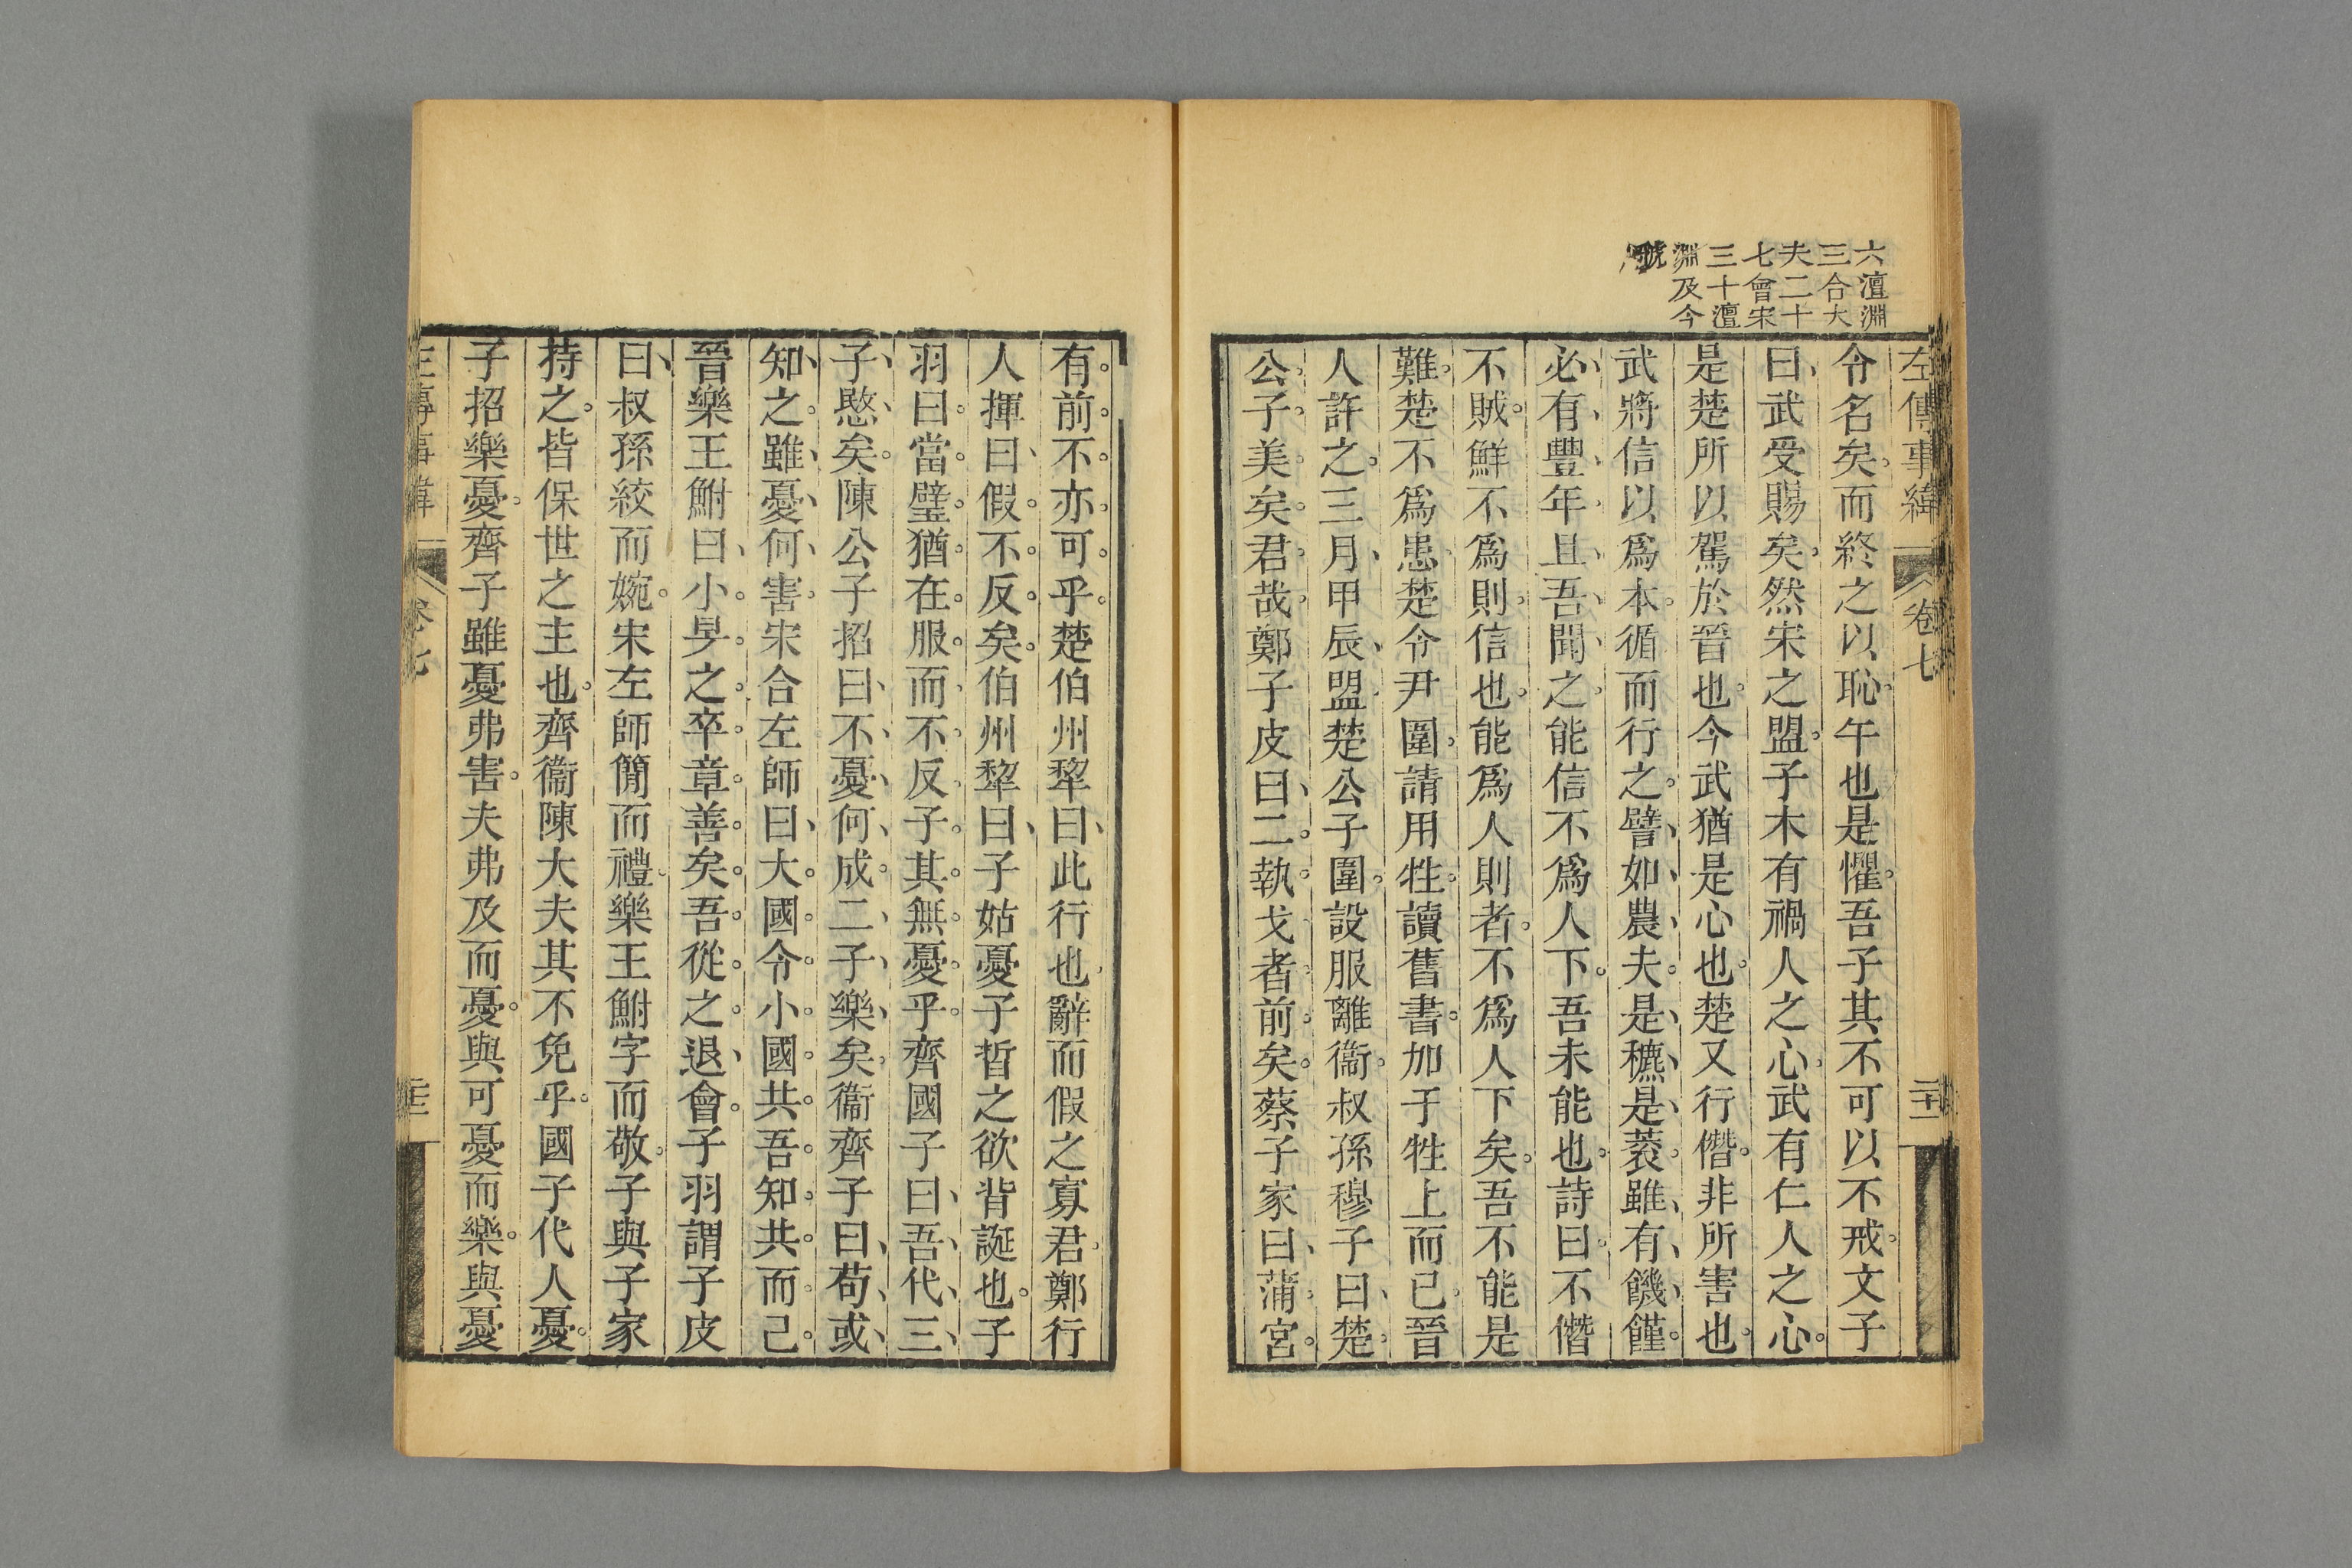 六澶淵
三合大
夫二十
七會宋
三十澶
淵及今
虢
左傳事緯
卷七
令名矣而終之以恥午也是懼吾子其不可以不戒文子
曰武受賜矣然宋之盟子木有禍人之心武有仁人之心
是楚所以駕於晉也今武猶是心也楚又行僭非所害也
武將信以爲本循而行之譬如農夫是穮是蓘雖有饑饉
必有豐年且吾聞之能信不爲人下吾未能也詩曰不僭
不賊鮮不爲則信也能爲人則者不爲人下矣吾不能是
難楚不爲患楚令尹圍請用牲讀舊書加于牲上而已晉
人許之三月甲辰盟楚公子圍設服離衞叔孫穆子曰楚
公子美矣君哉鄭子皮曰二執戈者前矣蔡子家曰蒲宮
有前不亦可乎楚伯州犂曰此行也辭而假之寡君鄭行
人揮曰假不反矣伯州犂曰子姑憂子晳之欲背誕也子
羽曰當璧猶在假而不反子其無憂乎齊國子曰吾代二
子愍矣陳公子招曰不憂何成二子樂矣衞齊子曰苟或
知之雖憂何害宋合左師曰大國令小國共吾知共而已
晉樂王鮒曰小旻之卒章善矣吾從之退會子羽謂子皮
曰叔孫絞而婉宋左師簡而禮樂王鮒字而敬子與子家
持之皆保世之主也齊衞陳大夫其不免乎國子代人憂
子招樂憂齊子雖憂弗害夫弗及而憂與可憂而樂與憂
左傳事緯
卷七